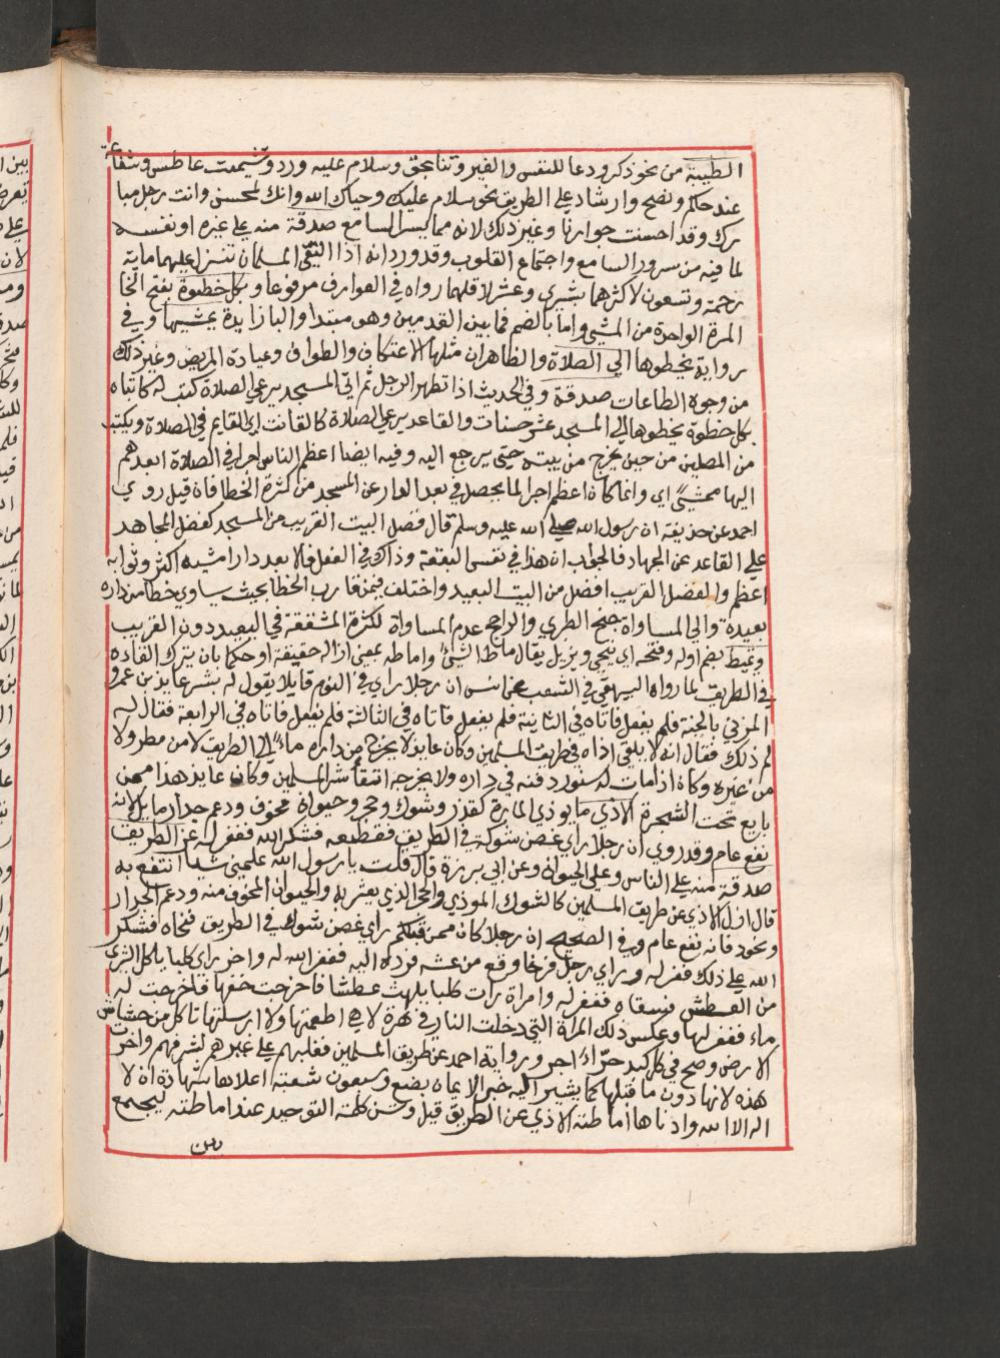 الطيبة من نحو ذكر ودعا للنفس والغير وثنا بحق وسلام عليه ورد وتشميت عاطس وشفاعة
عند حاكم ونصح وارشاد على الطريق نحو سلام عليك وحياك الله وانك لمحسن وانت رجل مبا
رك وقد احسنت جوارنا وغير ذلك لانه مما يسر السامع صدقة منه على غيره او نفسه
لما فيه من سرور السامع واجتماع القلوب وقد ورد انه اذا التقى المسلمان تنزل عليهما ماية
رحمة وتسعون لاكثرهما بشرى وعشر لاقلهما رواه في العوارف مرفوعا وبكل خطوة بفتح الخا
المرة الواحدة من المشي واما بالضم فما بين القدمين وهو مبتدا والبا زايدة يمشيها وفي
رواية يخطوها الى الصلاة والظاهر ان مثلها الاعتكاف والطواف وعيادة المريض وغير ذلك
من وجوه الطاعات صدقة وفي الحديث اذا تطهر الرجل ثم اتى المسجد يرعى الصلاة كتب له كاتباه
بكل خطوة يخطوها الى المسجد عشر حسنات والقاعد يرعى الصلاة كالقانت اي القايم في الصلاة ويكتب
من المصلين من حين يخرج من بيته حتى يرجع اليه وفيه ايضا اعظم الناس اجرا في الصلاة ابعدهم
اليها ممشى اي وانما كان اعظم اجرا لما يحصل في بعد الدار عن المسجد من كثرة الخطا فان قيل روى
احمد عن حذيفة ان رسول الله صلى الله عليه وسلم قال فضل البيت القريب من المسجد كفضل المجاهد
على القاعد عن الجهاد فالجواب ان هذا في نفس البقعة وذاك في الفعل فالابعد دارا مشيه اكثر وثوابه
اعظم والفضل القريب افضل من البيت البعيد واختلف فيمن قارب الخطا بحيث ساوى خطا من داره
بعيدة والى المساواة جنح الطبري والراجح عدم المساواة لكثرة المشقة في البعيد دون القريب
وتميط بضم اوله وفتحه اي ينحي ويزيل يقال ماط الشيء واماطه بمعنى ازاله حقيقة او حكما بان يترك القاذه
في الطريق لما رواه البيهقي في الشعب عن انس ان رجلا راى في النوم قايلا يقول له بشر عايذ بن عمرو
المزني بالجنة فلم يفعل فاتاه في الثانية فلم يفعل فاتاه في الثالثة فلم يفعل فاتاه في الرابعة فقال له
لم ذلك فقال انه لا يلقي اذاه في طريق المسلمين وكان عايذ لا يخرج من داره ماء الى الطريق لا من مطر ولا
من غيره وكان اذا مات له سنور دفنه في داره ولا يخرجه اتقا شر المسلمين وكان عايذ هذا ممن
بايع تحت الشجرة الاذى ما يوذي المارة كقذر وشوك وحجر وحيوان مخوف ودعم جدار مايل لانه
نفع عام وقد روى ان رجلا راى غصن شوك في الطريق فقطعه فشكر الله فغفر له عن الطريق
صدقة منه على الناس وعلى الحيوان وعن ابي برزة قال قلت يا رسول الله علمني شيا انتفع به
قال ازل الاذى عن طريق المسلمين كالشوك الموذي والحجر الذي يعثر به والحيوان المخوف منه ودعم الجدار
ونحوه فانه نفع عام وفي الصحيح ان رجلا كان ممن قبلكم راى غصن شوك في الطريق فنحاه فشكر
الله على ذلك فغفر له وراى رجل فرخا وقع من عشه فرده اليه فغفر الله له واخر راى كلبا ياكل الثرى
من العطش فسقاه فغفر له وامراة رات كلبا يلهث عطشا فاخرجت خفها فاخرجت له
ماء فغفر لها وعكس ذلك المراة التي دخلت النار في هرة لا هي اطعمتها ولا ارسلتها تاكل من خشاش
الارض وصح في كل كبد حراء اجر ورواية احمد عن طريق المسلمين فغلبهم على غيرهم لشرفهم واخرت
هذه لانها دون ما قبلها كما يشير اليه خبر الايمان بضع وسبعون شعبة اعلاها شهادة ان لا
اله الا الله وادناها اماطة الاذى عن الطريق قيل وسن كلمة التوحيد عند اماطته ليجتمع
بين